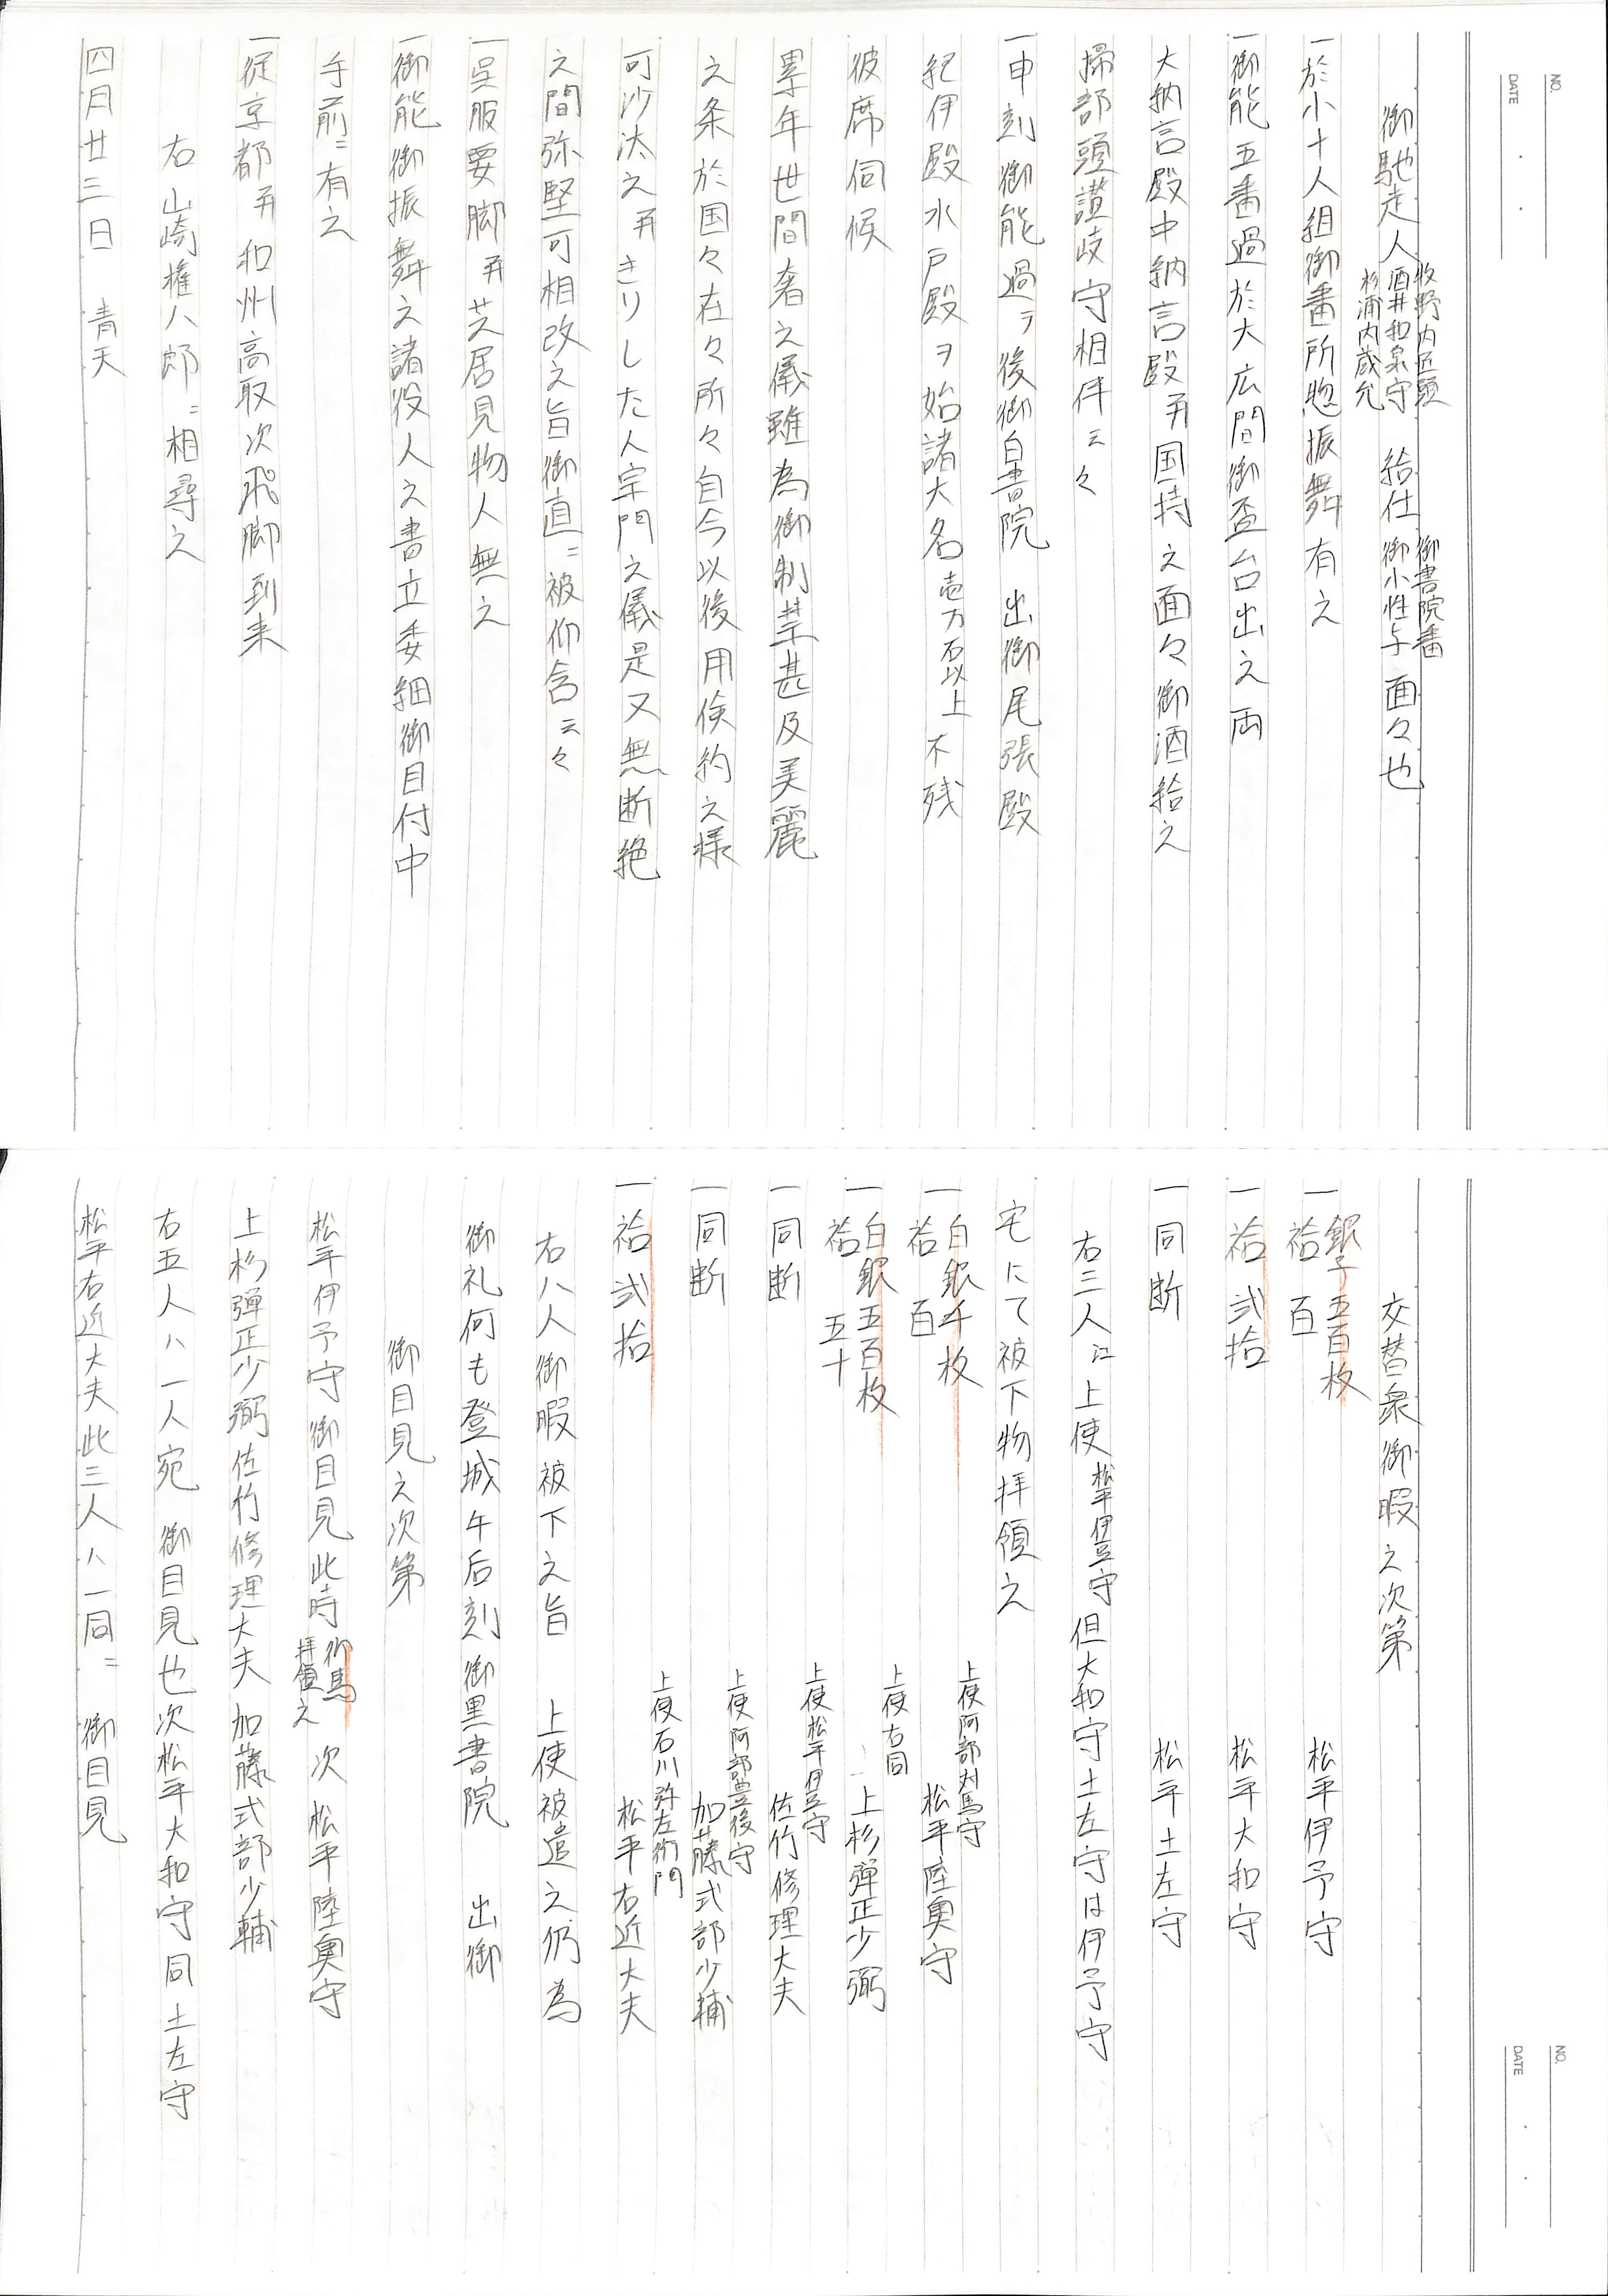 NO.
DATE
御馳走人 牧野内匠頭 酒井和泉守 杉浦内蔵允 給仕 御書院番 御小性与 面々也
一於小十人組御番所惣振舞有之
一御能五番過於大広間御盃台出之両
大納言殿中納言殿并国持之面々御酒給之
掃部頭讃岐守相伴云々
一申刻御能過テ後御白書院 出御尾張殿
紀伊殿水戸殿ヲ始諸大名壱万石以上不残
彼席伺候
累年世間奢之儀雖為御制禁甚及美麗
之条於国々在々所々自今以後用倹約之様
可沙汰之并きりした人宗門之儀是又無断絶
之間弥堅可相改之旨御直ニ被仰含云々
一呉服要脚并芝居見物人無之
一御能御振舞之諸役人之書立委細御目付中
手前ニ有之
一従京都并和州高取次飛脚到来
右山崎権八郎ニ相尋之
四月廿三日 青天
NO.
DATE
交替衆御暇之次第
一銀子五百枚 袷百 松平伊予守
一袷弐拾 松平大和守
一同断 松平土左守
右三人江上使松平伊豆守但大和守土左守は伊予守
宅にて被下物拝領之
一白銀千枚 袷百 上使阿部対馬守 松平陸奥守
一白銀五百枚 袷五十 上使右同 上杉弾正少弼
一同断 上使松平伊豆守 佐竹修理大夫
一同断 上使阿部豊後守 加藤式部少輔
一袷弐拾 上使石川弥左衛門 松平右近大夫
右八人御暇被下之旨 上使被遣之仍為
御礼何も登城午后刻御黒書院 出御
御目見之次第
松平伊予守御目見此時御馬拝領之 次松平陸奥守
上杉弾正少弼佐竹修理大夫加藤式部少輔
右五人ハ一人宛 御目見也次松平大和守同土左守
松平右近大夫此三人ハ一同ニ 御目見